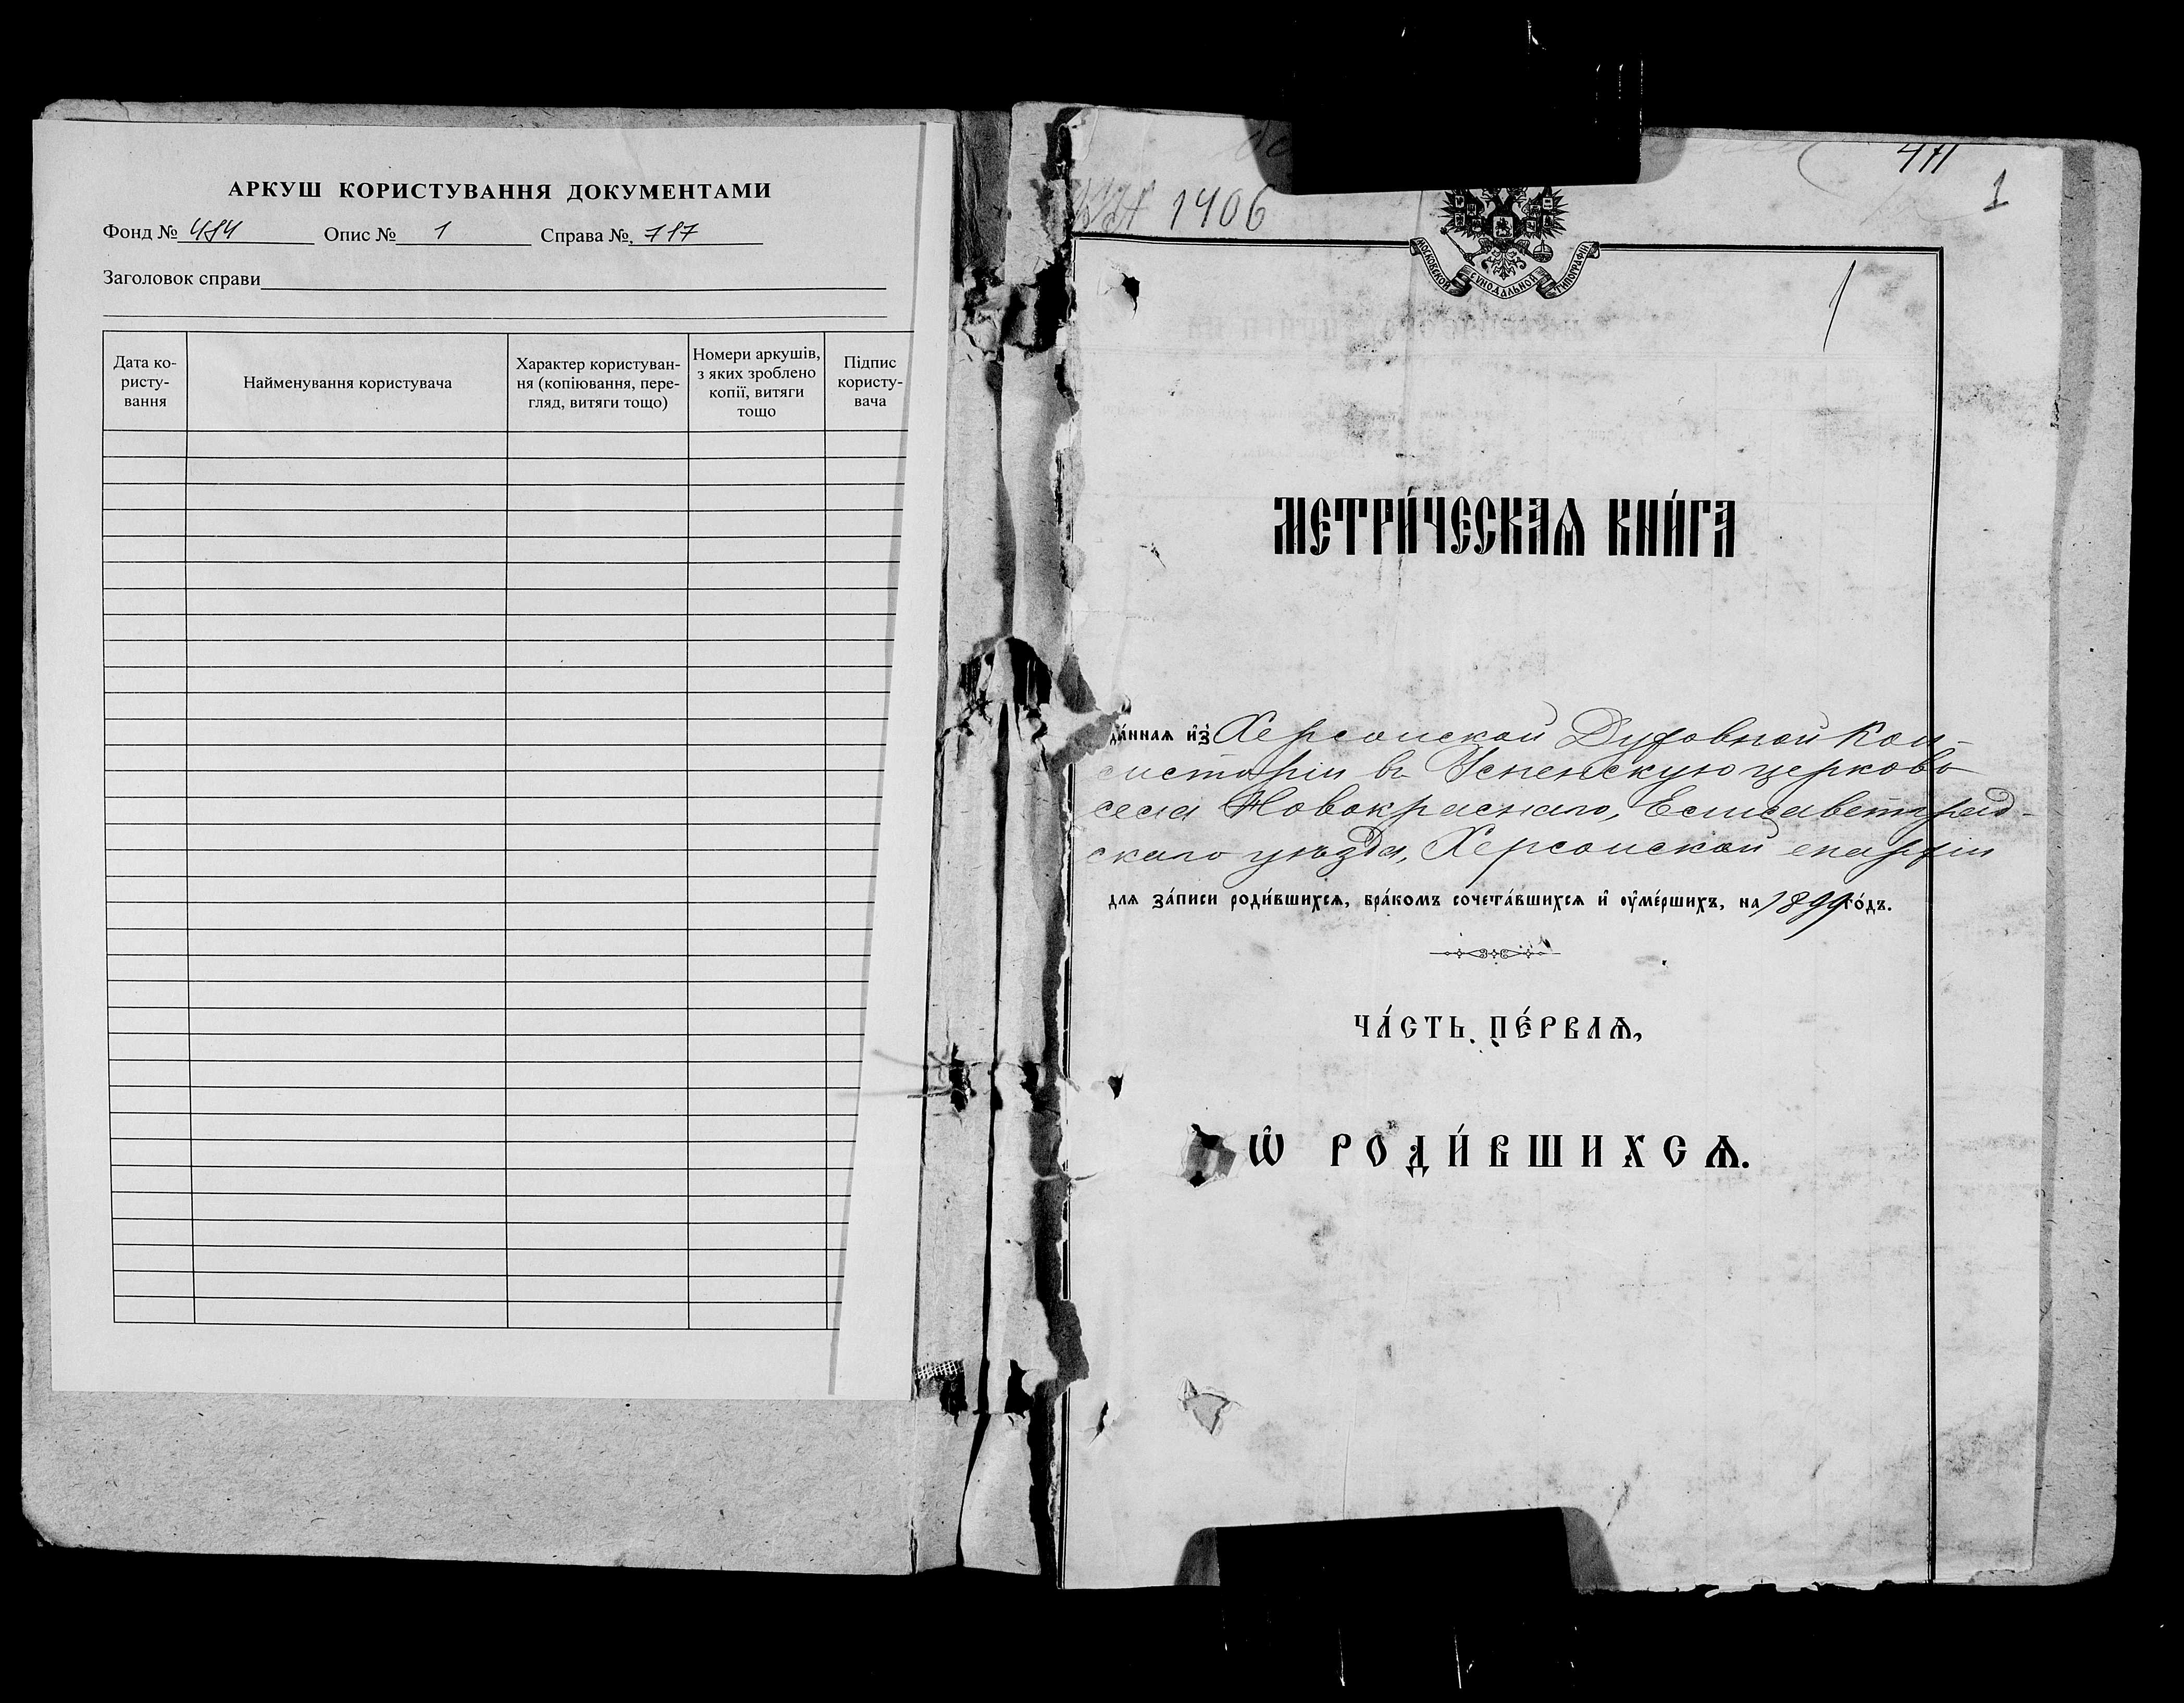 АРКУШ КОРИСТУВАННЯ ДОКУМЕНТАМИ
Фонд № 484 Опис № 1 Справа № 717
Заголовок справи
Дата ко-
ристу-
вання
Найменування користувача
Характер користуван-
ня (копіювання, пере-
гляд, витяги тощо)
Номери аркушів,
з яких зроблено
копії, витяги
тощо
Підпис
користу-
вача
1406
471
1
МОСКОВСКОЙ СѴНОДАЛЬНОЙ ТИПОГРАФІИ
1
МЕТРИ́ЧЕСКАѦ КНИ́ГА
да́нная и҆з̾ Херсонской Духовной Кон-
систоріи въ Успенскую церковь
села Новокраснаго, Елисаветград-
скаго уѣзда, Херсонской епархіи
для за́писи роди́вшихсѧ, бра́комъ сочета́вшихсѧ и҆ ѹ҆ме́ршихъ, на 1899 го́дъ.
ЧА́СТЬ ПЕ́РВАѦ,
Ѡ҆ РОДИ́ВШИХСѦ.